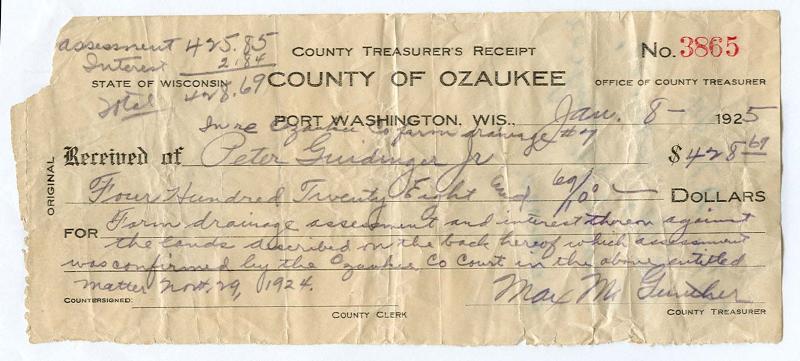 Assessment 425.85
Interest 2.84
Total 428.69
COUNTY TREASURER'S RECEIPT
No. 3865
STATE OF WISCONSIN
COUNTY OF OZAUKEE
OFFICE OF COUNTY TREASURER
PORT WASHINGTON, WIS., Jan. 8- 1925
In re Ozaukee Co farm drainage #7
ORIGINAL
Received of Peter Guidinger Jr $428.69
Four Hundred Twenty Eight and 69/100 DOLLARS
FOR Farm drainage assessment and interest thereon against
the lands described on the back hereof which assessment
was confirmed by the Ozaukee Co Court in the above entitled
matter Nov. 29, 1924.
Max M
COUNTERSIGNED:
COUNTY CLERK
COUNTY TREASURER